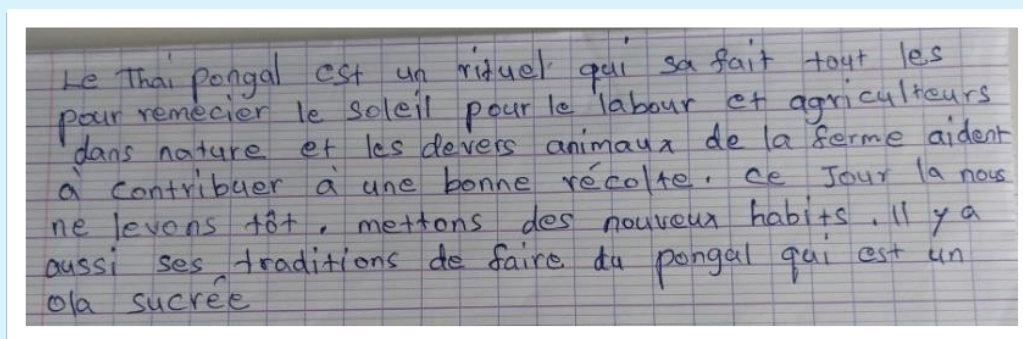 Le Thai Pongal est un rituel qui sa fait tout les
pour remecier le soleil pour le labour et agriculteurs
dans nature et les devers animaux de la ferme aident
à contribuer à une bonne récolte. Ce Jour la nous
ne levons tôt, mettons des nouveux habits. Il y a
aussi ses traditions de faire du pongal qui est un
ola sucrée